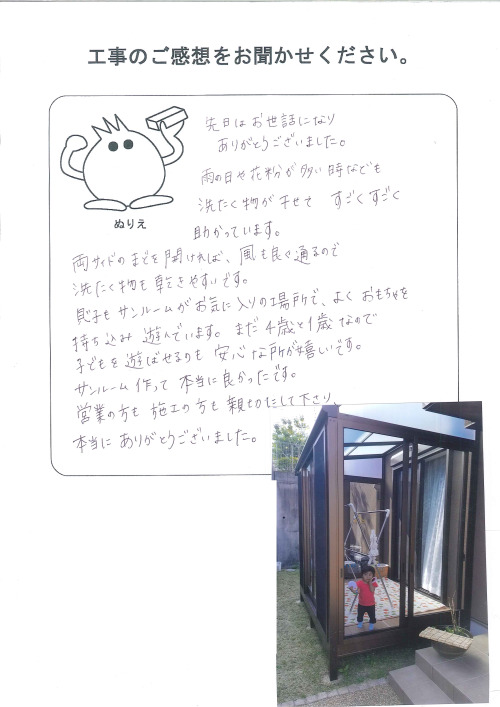 工事のご感想をお聞かせください。
先日はお世話になり
ありがとうございました。
雨の日や花粉が多い時なども
洗たく物が干せて すごくすごく
助かっています。
ぬりえ
両サイドのまどを開ければ、風も良く通るので
洗たく物も乾きやすいです。
息子もサンルームがお気に入りの場所で、よくおもちゃを
持ち込み 遊んでいます。まだ4歳と1歳なので
子どもを遊ばせるのも 安心な所が嬉しいです。
サンルーム 作って 本当に良かったです。
営業の方も 施工の方も 親切にして下さり、
本当に ありがとうございました。